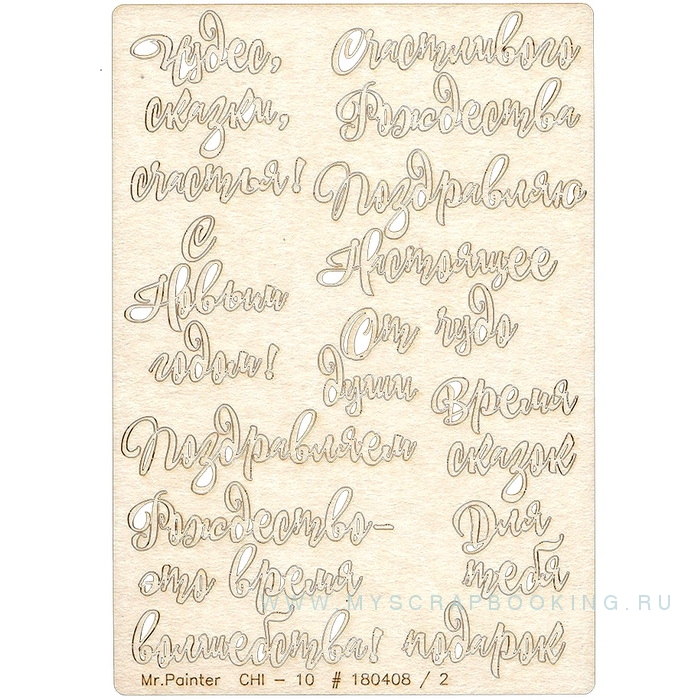 Чудес,
сказки,
счастья!
Счастливого
Рождества
Поздравляю
С
Новым
годом!
Настоящее
чудо
От
души
Время
сказок
Поздравляем
Рождество-
это время
волшебства!
Для
тебя
подарок
WWW.MYSCRAPBOOKING.RU
Mr.Painter CHI - 10 # 180408 / 2